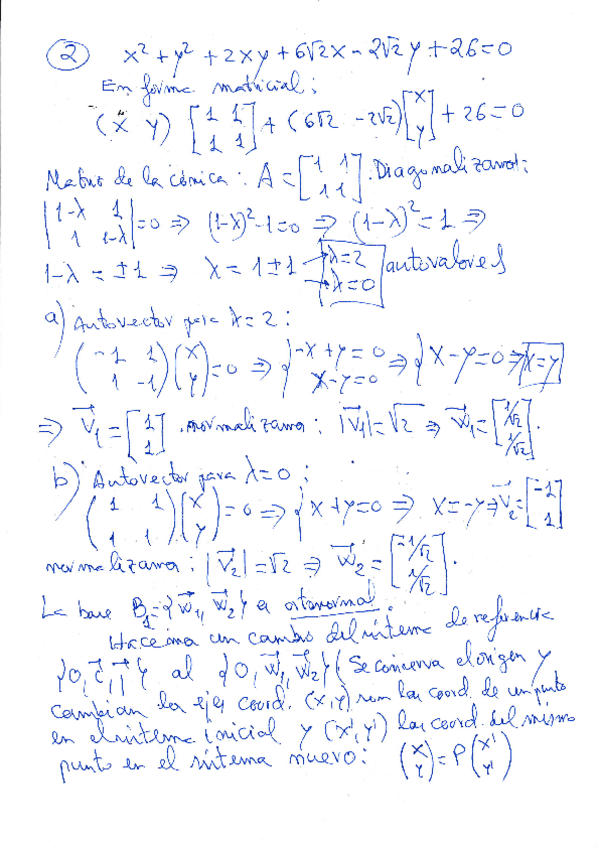 2 x² + y² + 2xy + 6√2x - 2√2y + 26 = 0
En forma matricial:
(x y) [1 1; 1 1] + (6√2 -2√2) [x; y] + 26 = 0
Matriz de la cónica: A = [1 1; 1 1]. Diagonalizamos:
|1-λ 1; 1 1-λ| = 0 ⇒ (1-λ)² - 1 = 0 ⇒ (1-λ)² = 1 ⇒
1-λ = ±1 ⇒ λ = 1±1 → λ=2 → λ=0 autovalores
a) Autovector para λ = 2:
(-1 1; 1 -1) (x; y) = 0 ⇒ { -x + y = 0; x - y = 0 ⇒ { x - y = 0 ⇒ x = y
⇒ V₁ = [1; 1]. normalizamos: |V₁| = √2 ⇒ W₁ = [1/√2; 1/√2].
b) Autovector para λ = 0:
(1 1; 1 1) (x; y) = 0 ⇒ { x + y = 0 ⇒ x = -y ⇒ V₂ = [-1; 1]
normalizamos: |V₂| = √2 ⇒ W₂ = [-1/√2; 1/√2].
La base B₁ = {W₁, W₂} es ortonormal.
Hacemos un cambio del sistema de referencia
{O, i, j} al {O, W₁, W₂} (Se conserva el origen y
cambian los ejes coord. (x, y) son las coord. de un punto
en el sistema inicial y (x', y') las coord. del mismo
punto en el sistema nuevo: (x; y) = P (x'; y')